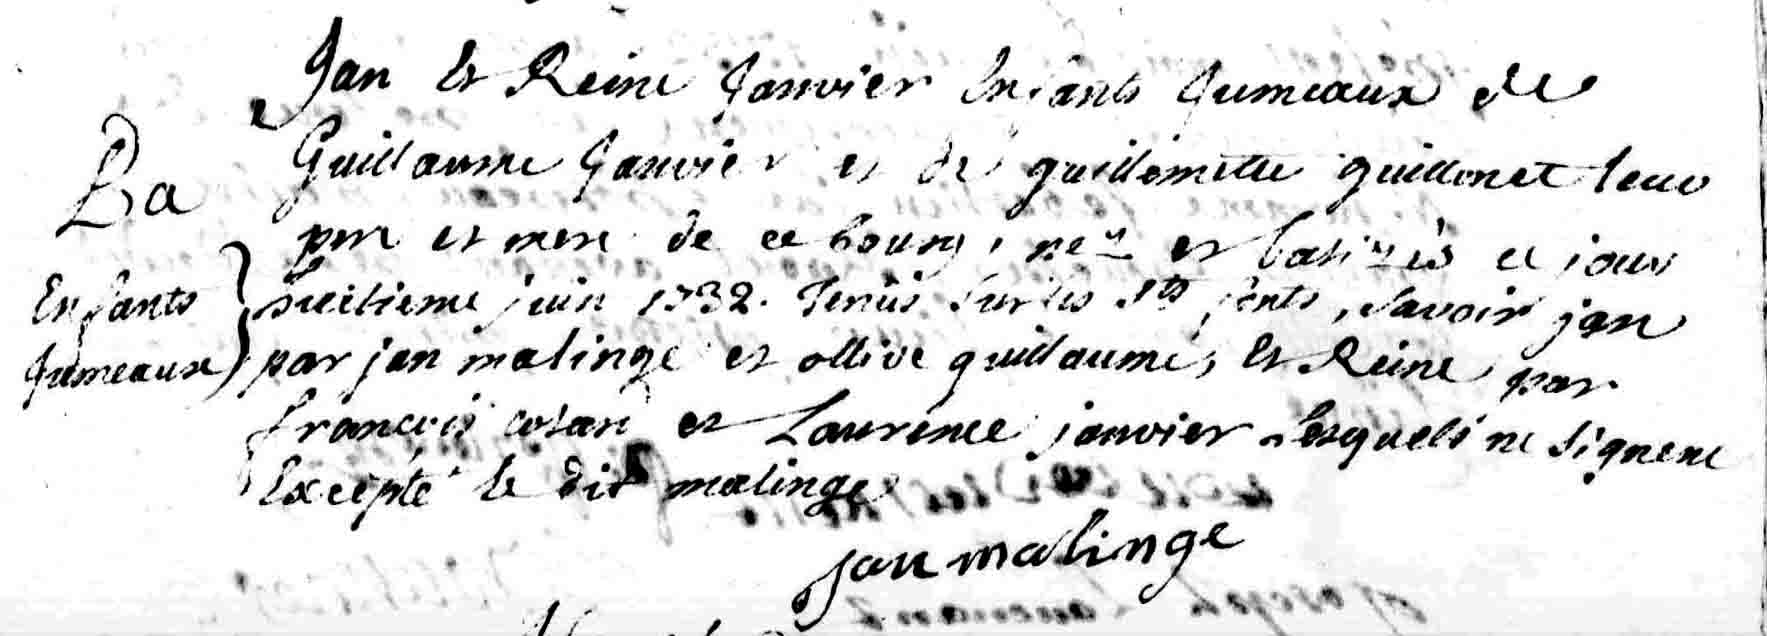 Jan et Reine Janvier Enfants Jumeaux de
Ba
Guillaume Janvier et de guillemette guillonet leur
pere et mere de ce bourg, nez et batisés ce jour
Enfants
huitieme juin 1732. Tenus sur les Sts fonts, savoir jan
Jumeaux
par jan malinge et ollive guillaume, et Reine par
francois et Laurence janvier lesquels ne signent
Excepté le dit malinge
jan malinge